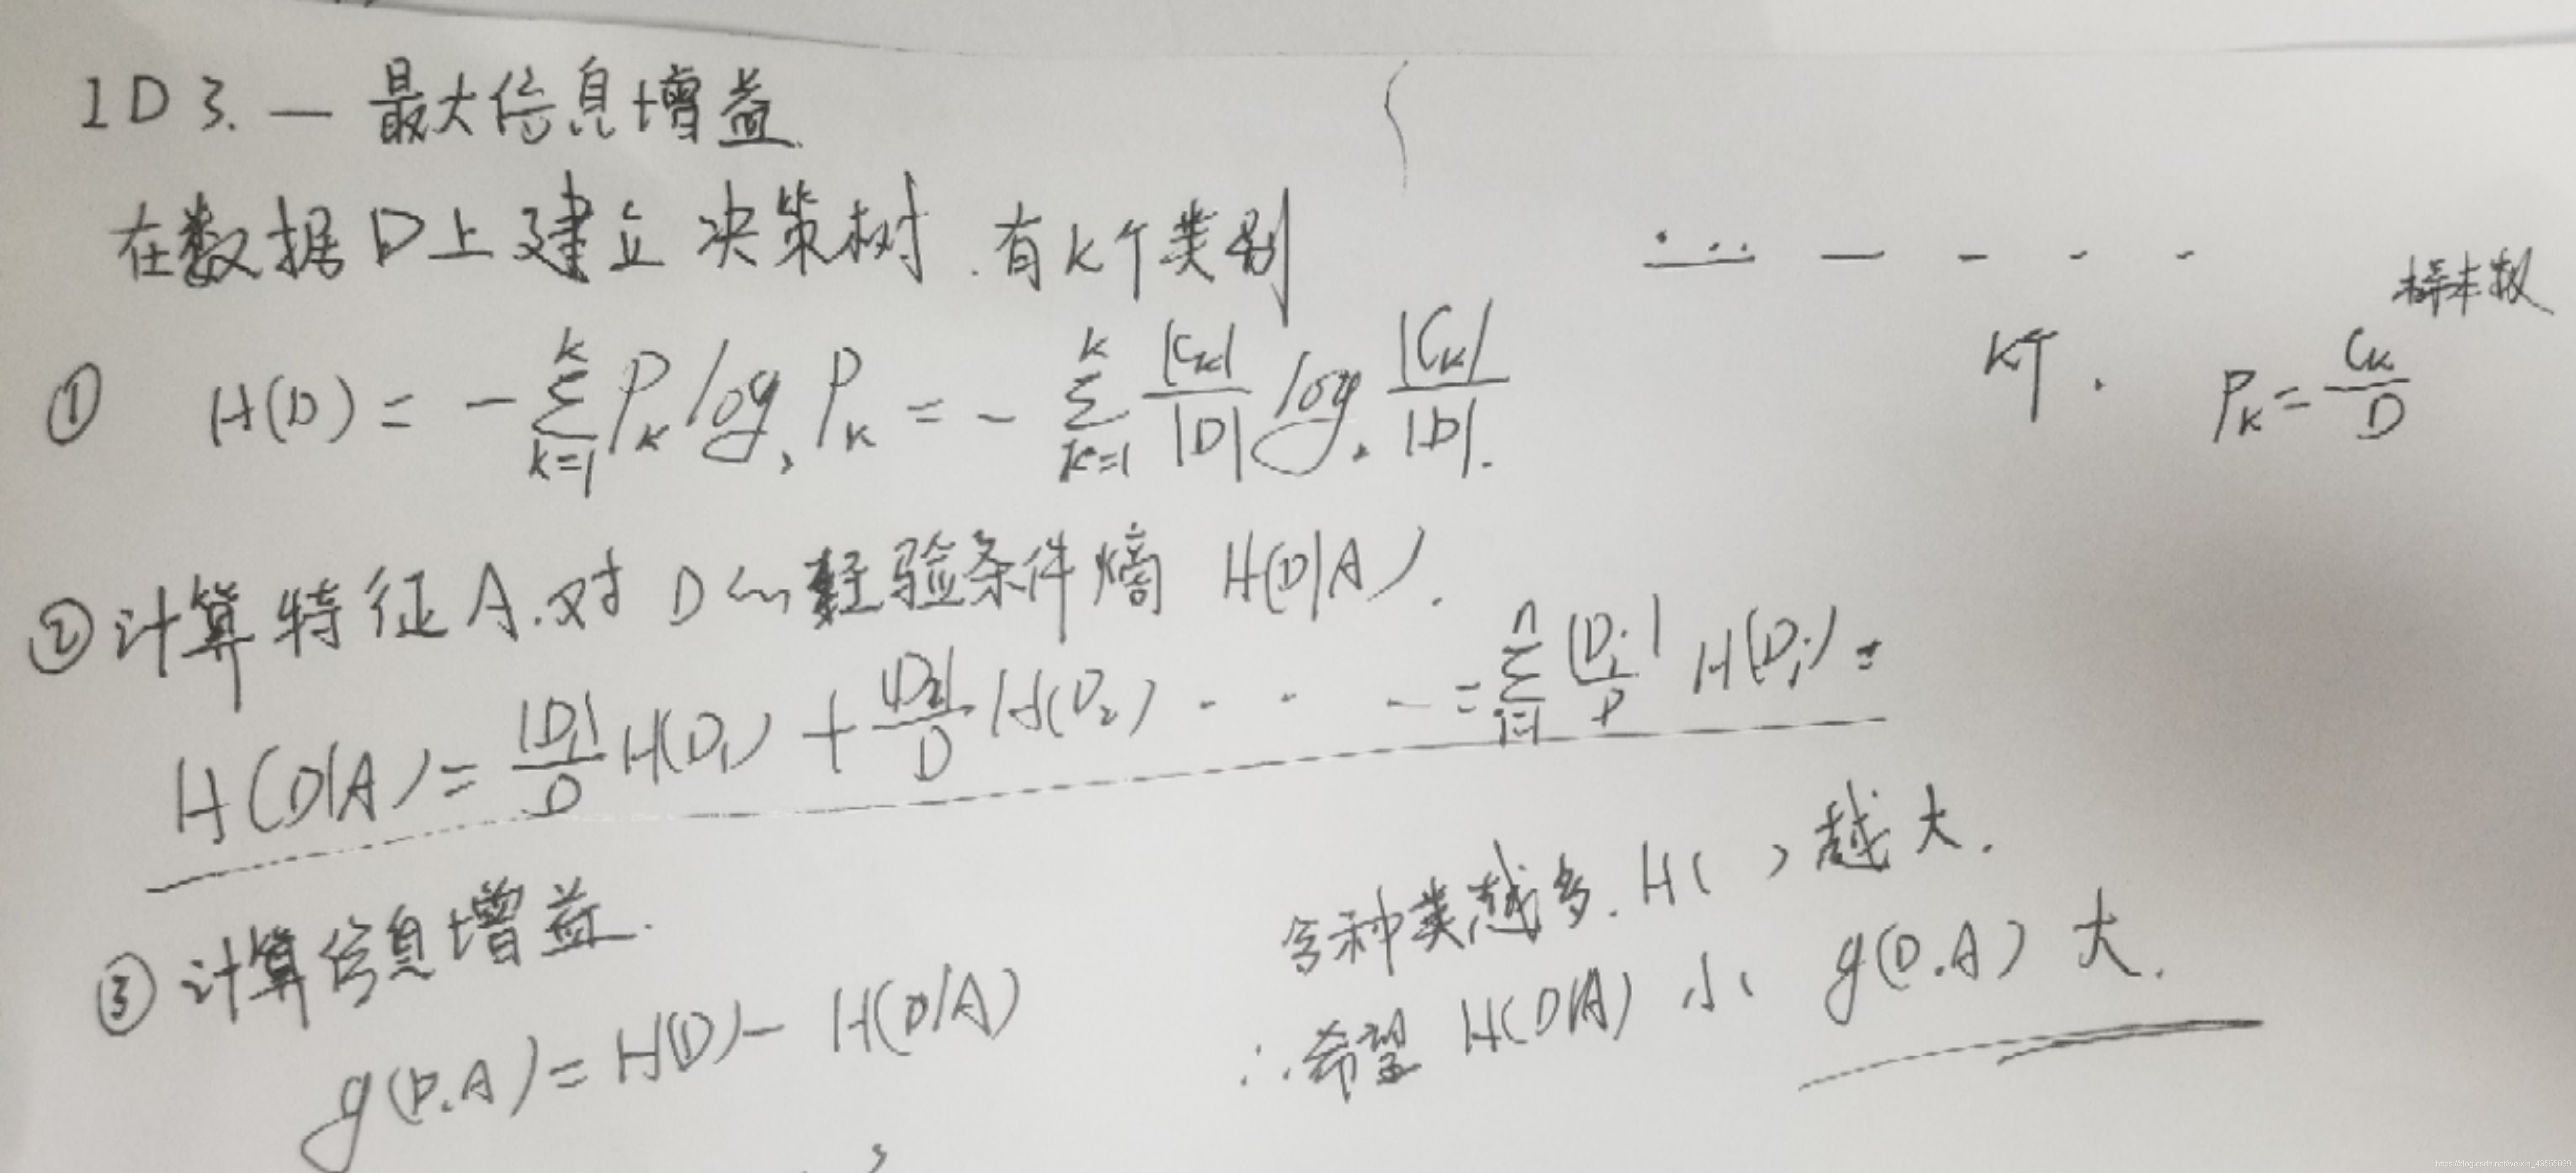 ID3. — 最大信息增益.
在数据D上建立决策树.有K个类别
样本数
K个.
P_K = C_K / D
① H(D) = - \sum_{k=1}^{K} P_K log_2 P_K = - \sum_{k=1}^{K} |C_K|/|D| log_2 |C_K|/|D|.
② 计算特征A.对D的经验条件熵 H(D|A).
H(D|A) = |D_1|/D H(D_1) + |D_2|/D H(D_2) · · · = \sum_{i=1}^{n} |D_i|/D H(D_i) =
③ 计算信息增益.
g(D.A) = H(D) - H(D|A)
含种类越多.H( )越大.
∴希望 H(D|A) 小、g(D.A) 大.
https://blog.csdn.net/weixin_43555095